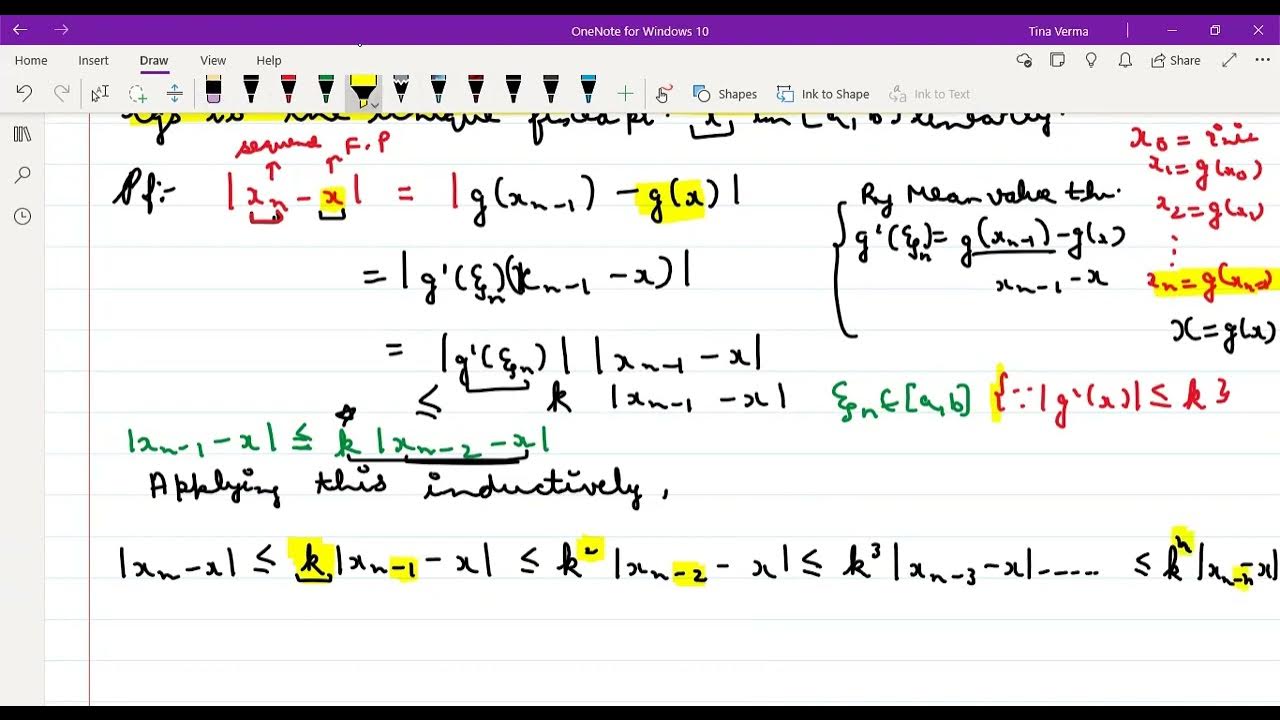 OneNote for Windows 10
Tina Verma
Home Insert Draw View Help
Share
Shapes Ink to Shape Ink to Text
is the unique fixed pt. x in [a, b] linearly.
sequence F.P
Pf:- |xₙ - x| = |g(xₙ₋₁) - g(x)|
= |g'(ξₙ)(xₙ₋₁ - x)|
= |g'(ξₙ)| |xₙ₋₁ - x|
≤ k |xₙ₋₁ - x| ξₙ ∈ [a,b] {∵ |g'(x)| ≤ k}
By Mean value thm.
g'(ξₙ) = g(xₙ₋₁) - g(x)
xₙ₋₁ - x
x₀ =
x₁ = g(x₀)
x₂ = g(x₁)
⋮
xₙ = g(xₙ₋₁)
x = g(x)
|xₙ₋₁ - x| ≤ k |xₙ₋₂ - x|
Applying this inductively,
|xₙ - x| ≤ k |xₙ₋₁ - x| ≤ k² |xₙ₋₂ - x| ≤ k³ |xₙ₋₃ - x| ----- ≤ kⁿ |xₙ₋ₙ - x|